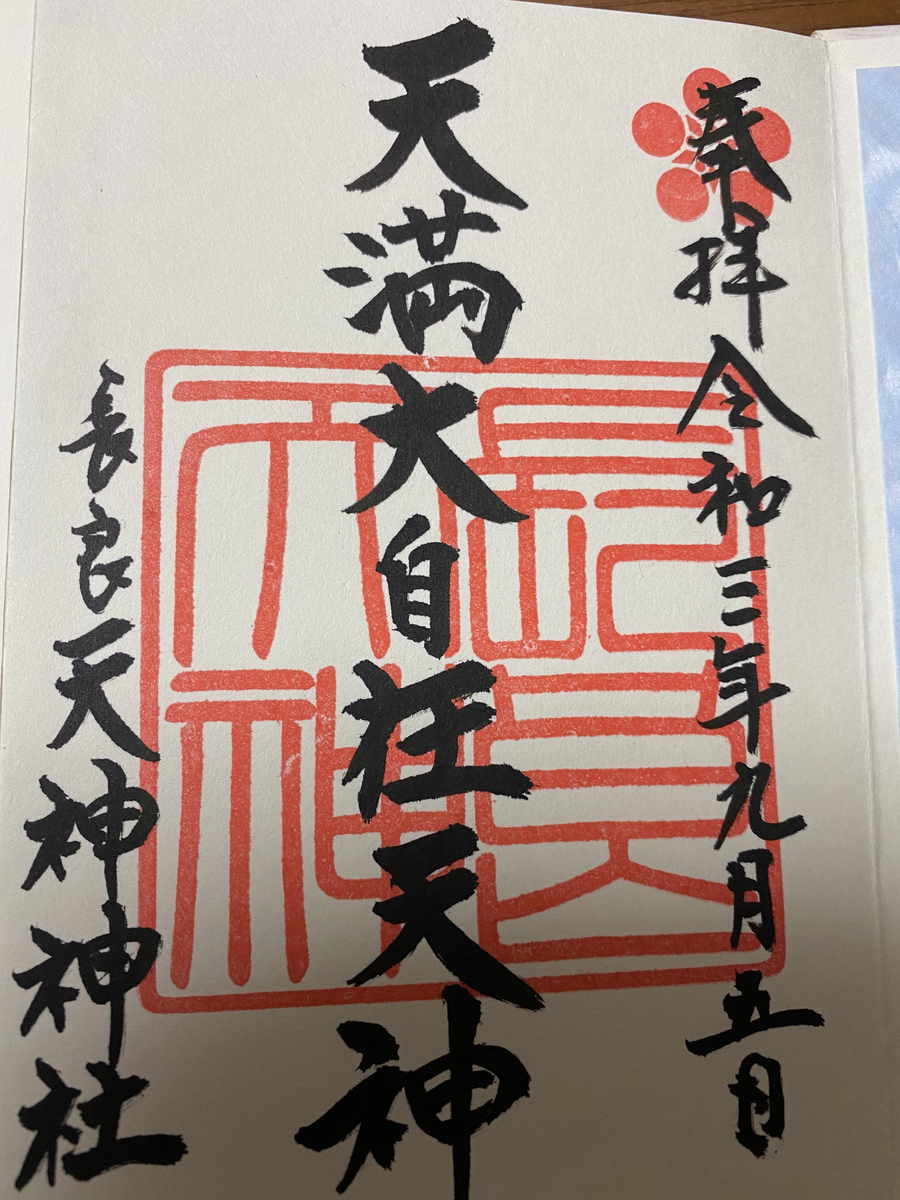 奉拝 令和三年九月五日
天満大自在天神
長良
天神
長良天神神社